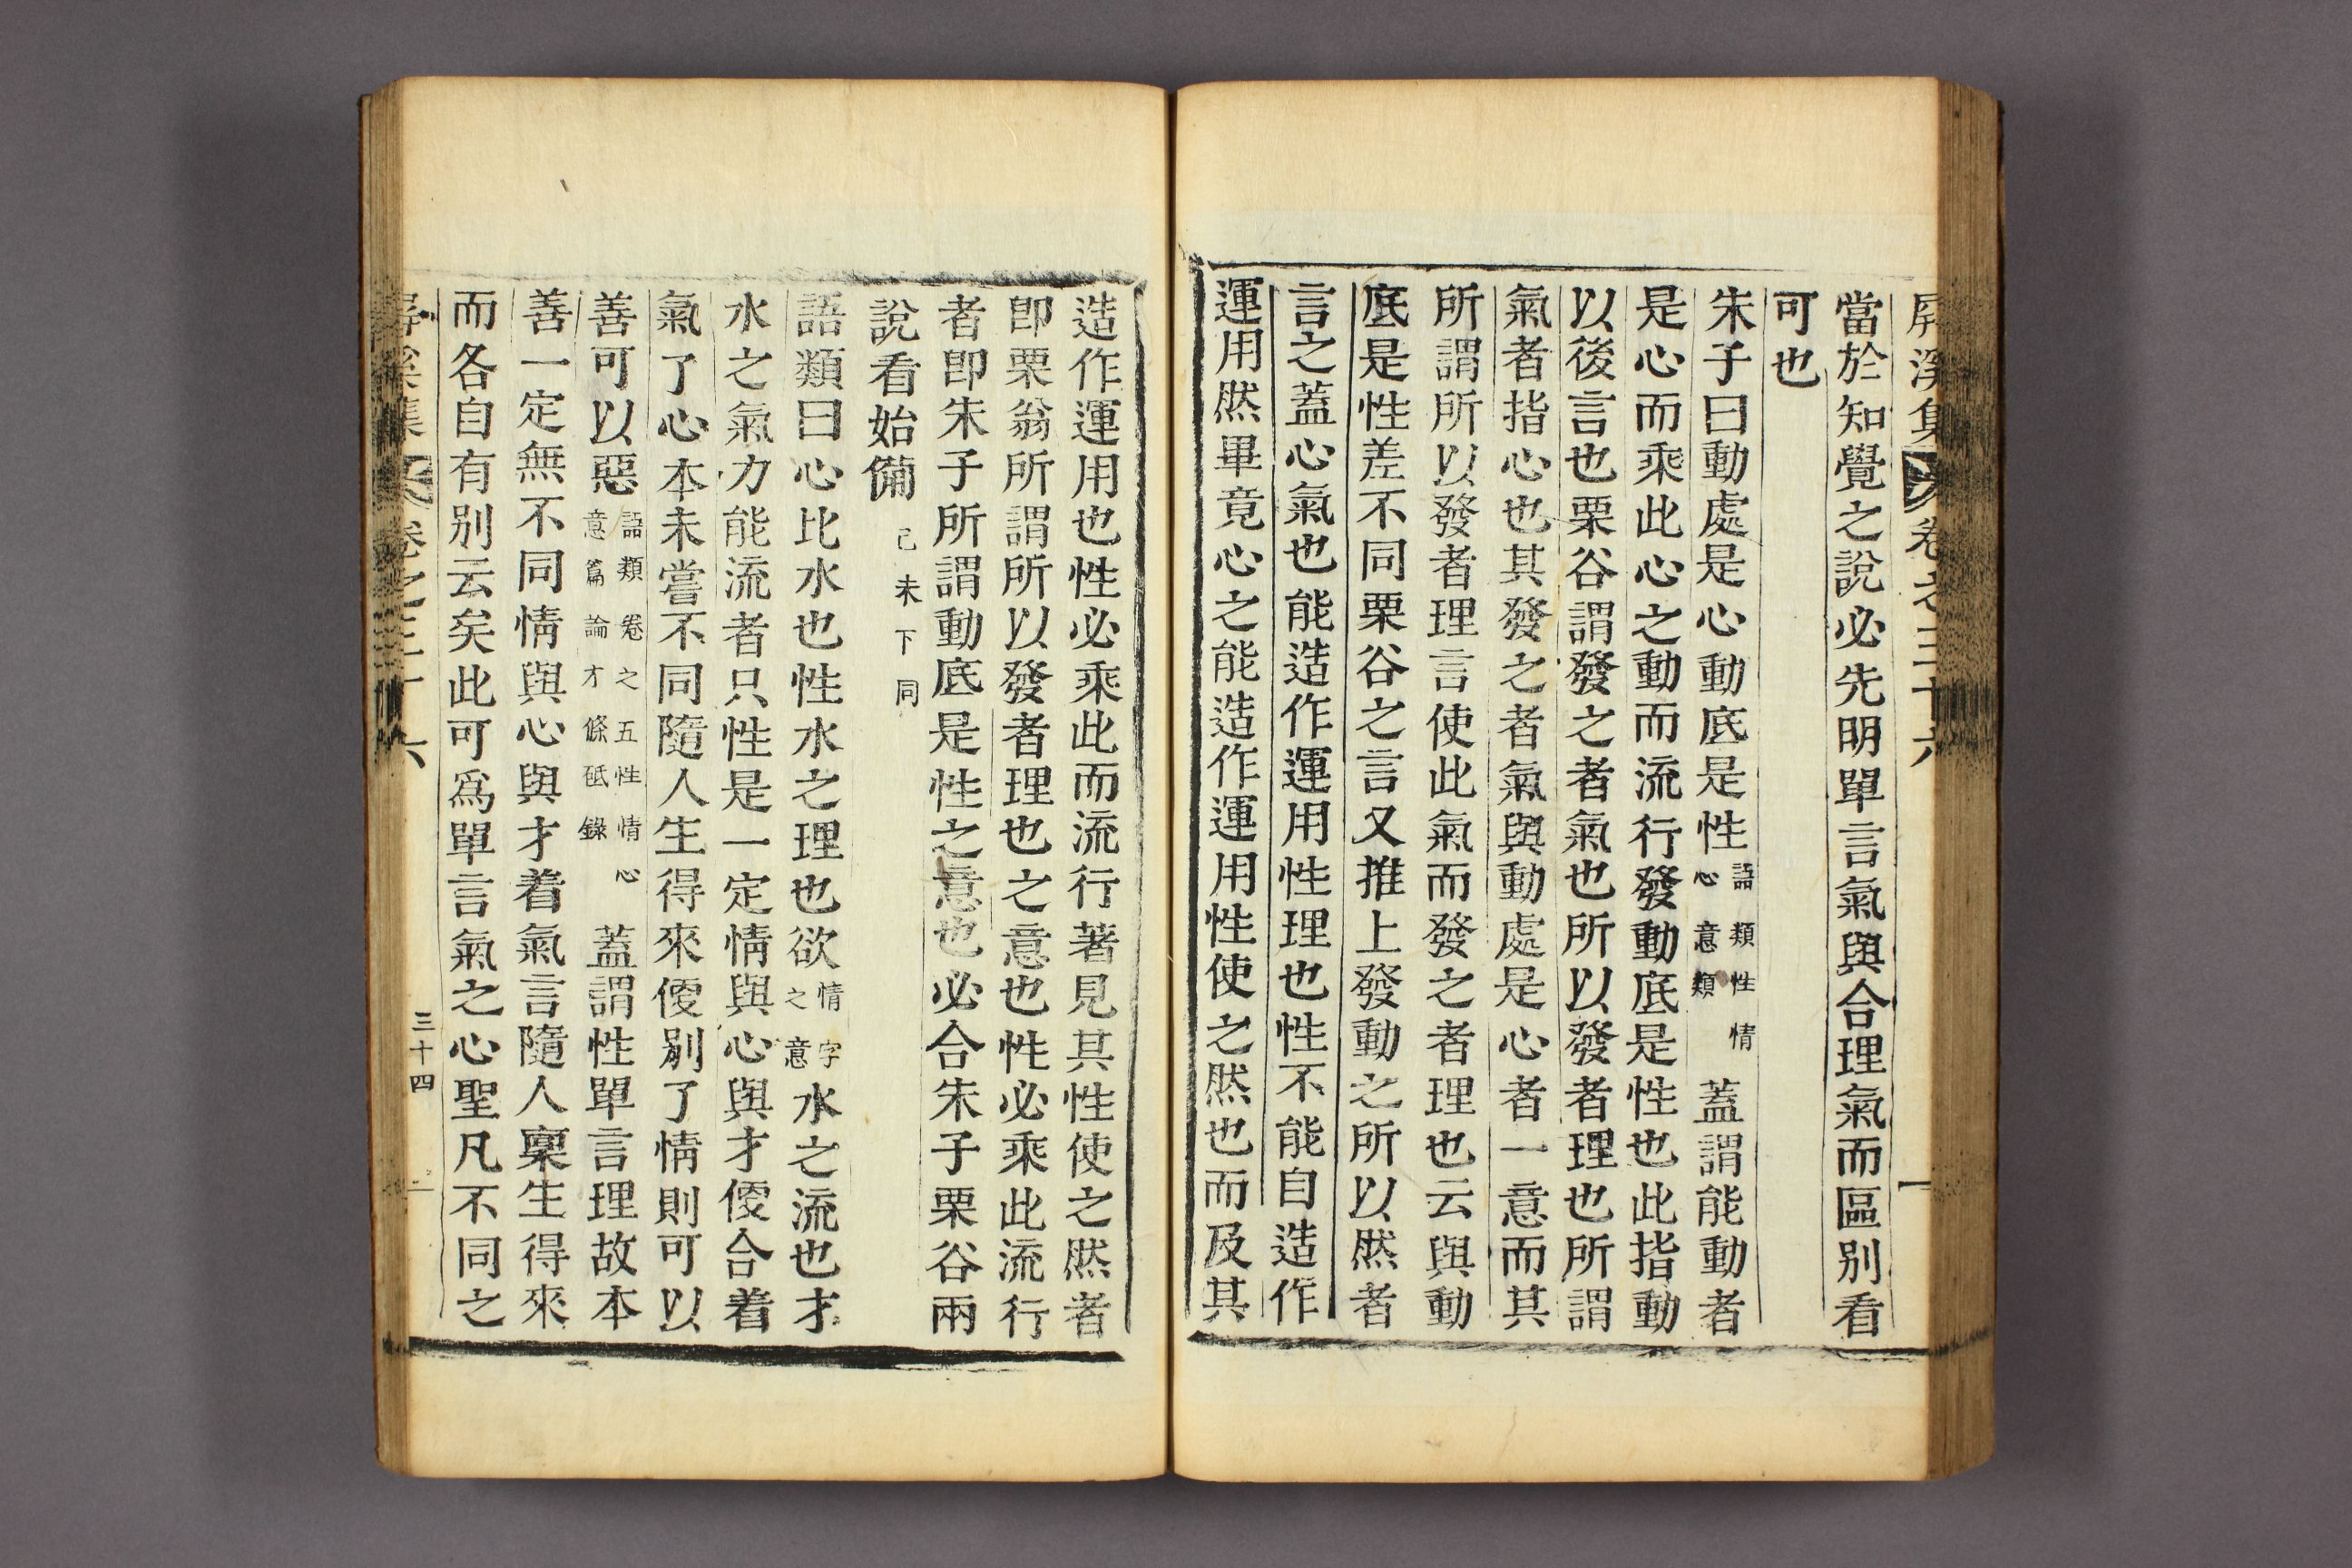 屛溪集 卷之三十六
當於知覺之說必先明單言氣與合理氣而區别看
可也
朱子曰動處是心動底是性語類性情心意類蓋謂能動者
是心而乘此心之動而流行發動底是性也此指動
以後言也栗谷謂發之者氣也所以發者理也所謂
氣者指心也其發之者氣與動處是心者一意而其
所謂所以發者理言使此氣而發之者理也云與動
底是性差不同栗谷之言又推上發動之所以然者
言之蓋心氣也能造作運用性理也性不能自造作
運用然畢竟心之能造作運用性使之然也而及其
造作運用也性必乘此而流行著見其性使之然者
卽栗翁所謂所以發者理也之意也性必乘此流行
者卽朱子所謂動底是性之意也必合朱子栗谷兩
說看始備己未下同
語類曰心比水也性水之理也欲情字之意水之流也才
水之氣力能流者只性是一定情與心與才便合着
氣了心本未嘗不同隨人生得來便别了情則可以
善可以惡語類卷之五性情心意篇論才條砥錄蓋謂性單言理故本
善一定無不同情與心與才着氣言隨人稟生得來
而各自有别云矣此可爲單言氣之心聖凡不同之
屛溪集 卷之三十六 三十四